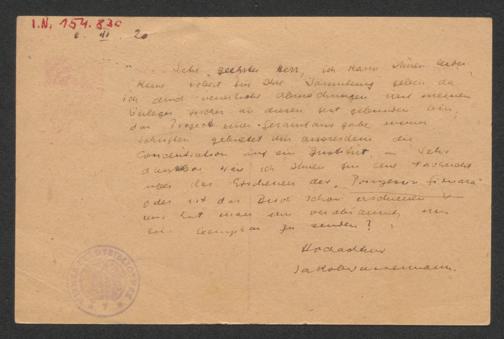 I.N. 154.830
6. XI. 20
Sehr geehrter Herr, ich kann Ihnen leider
keine Arbeit für Ihre Sammlung geben da
ich durch vertragliche Abmachungen mit meinem
Verleger Fischer an diesen fest gebunden bin;
das Project einer Gesamtausgabe meiner
Schriften gebietet mir ausserdem die
Concentration auf ein Institut. Sehr
dankbar wäre ich Ihnen für eine Nachricht
über das Erscheinen der "Prinzessin Girnara"
oder ist das Buch schon erschienen
und hat man nur versäumt, mir
ein Exemplar zu senden?
Hochachtend
Jakob Wassermann